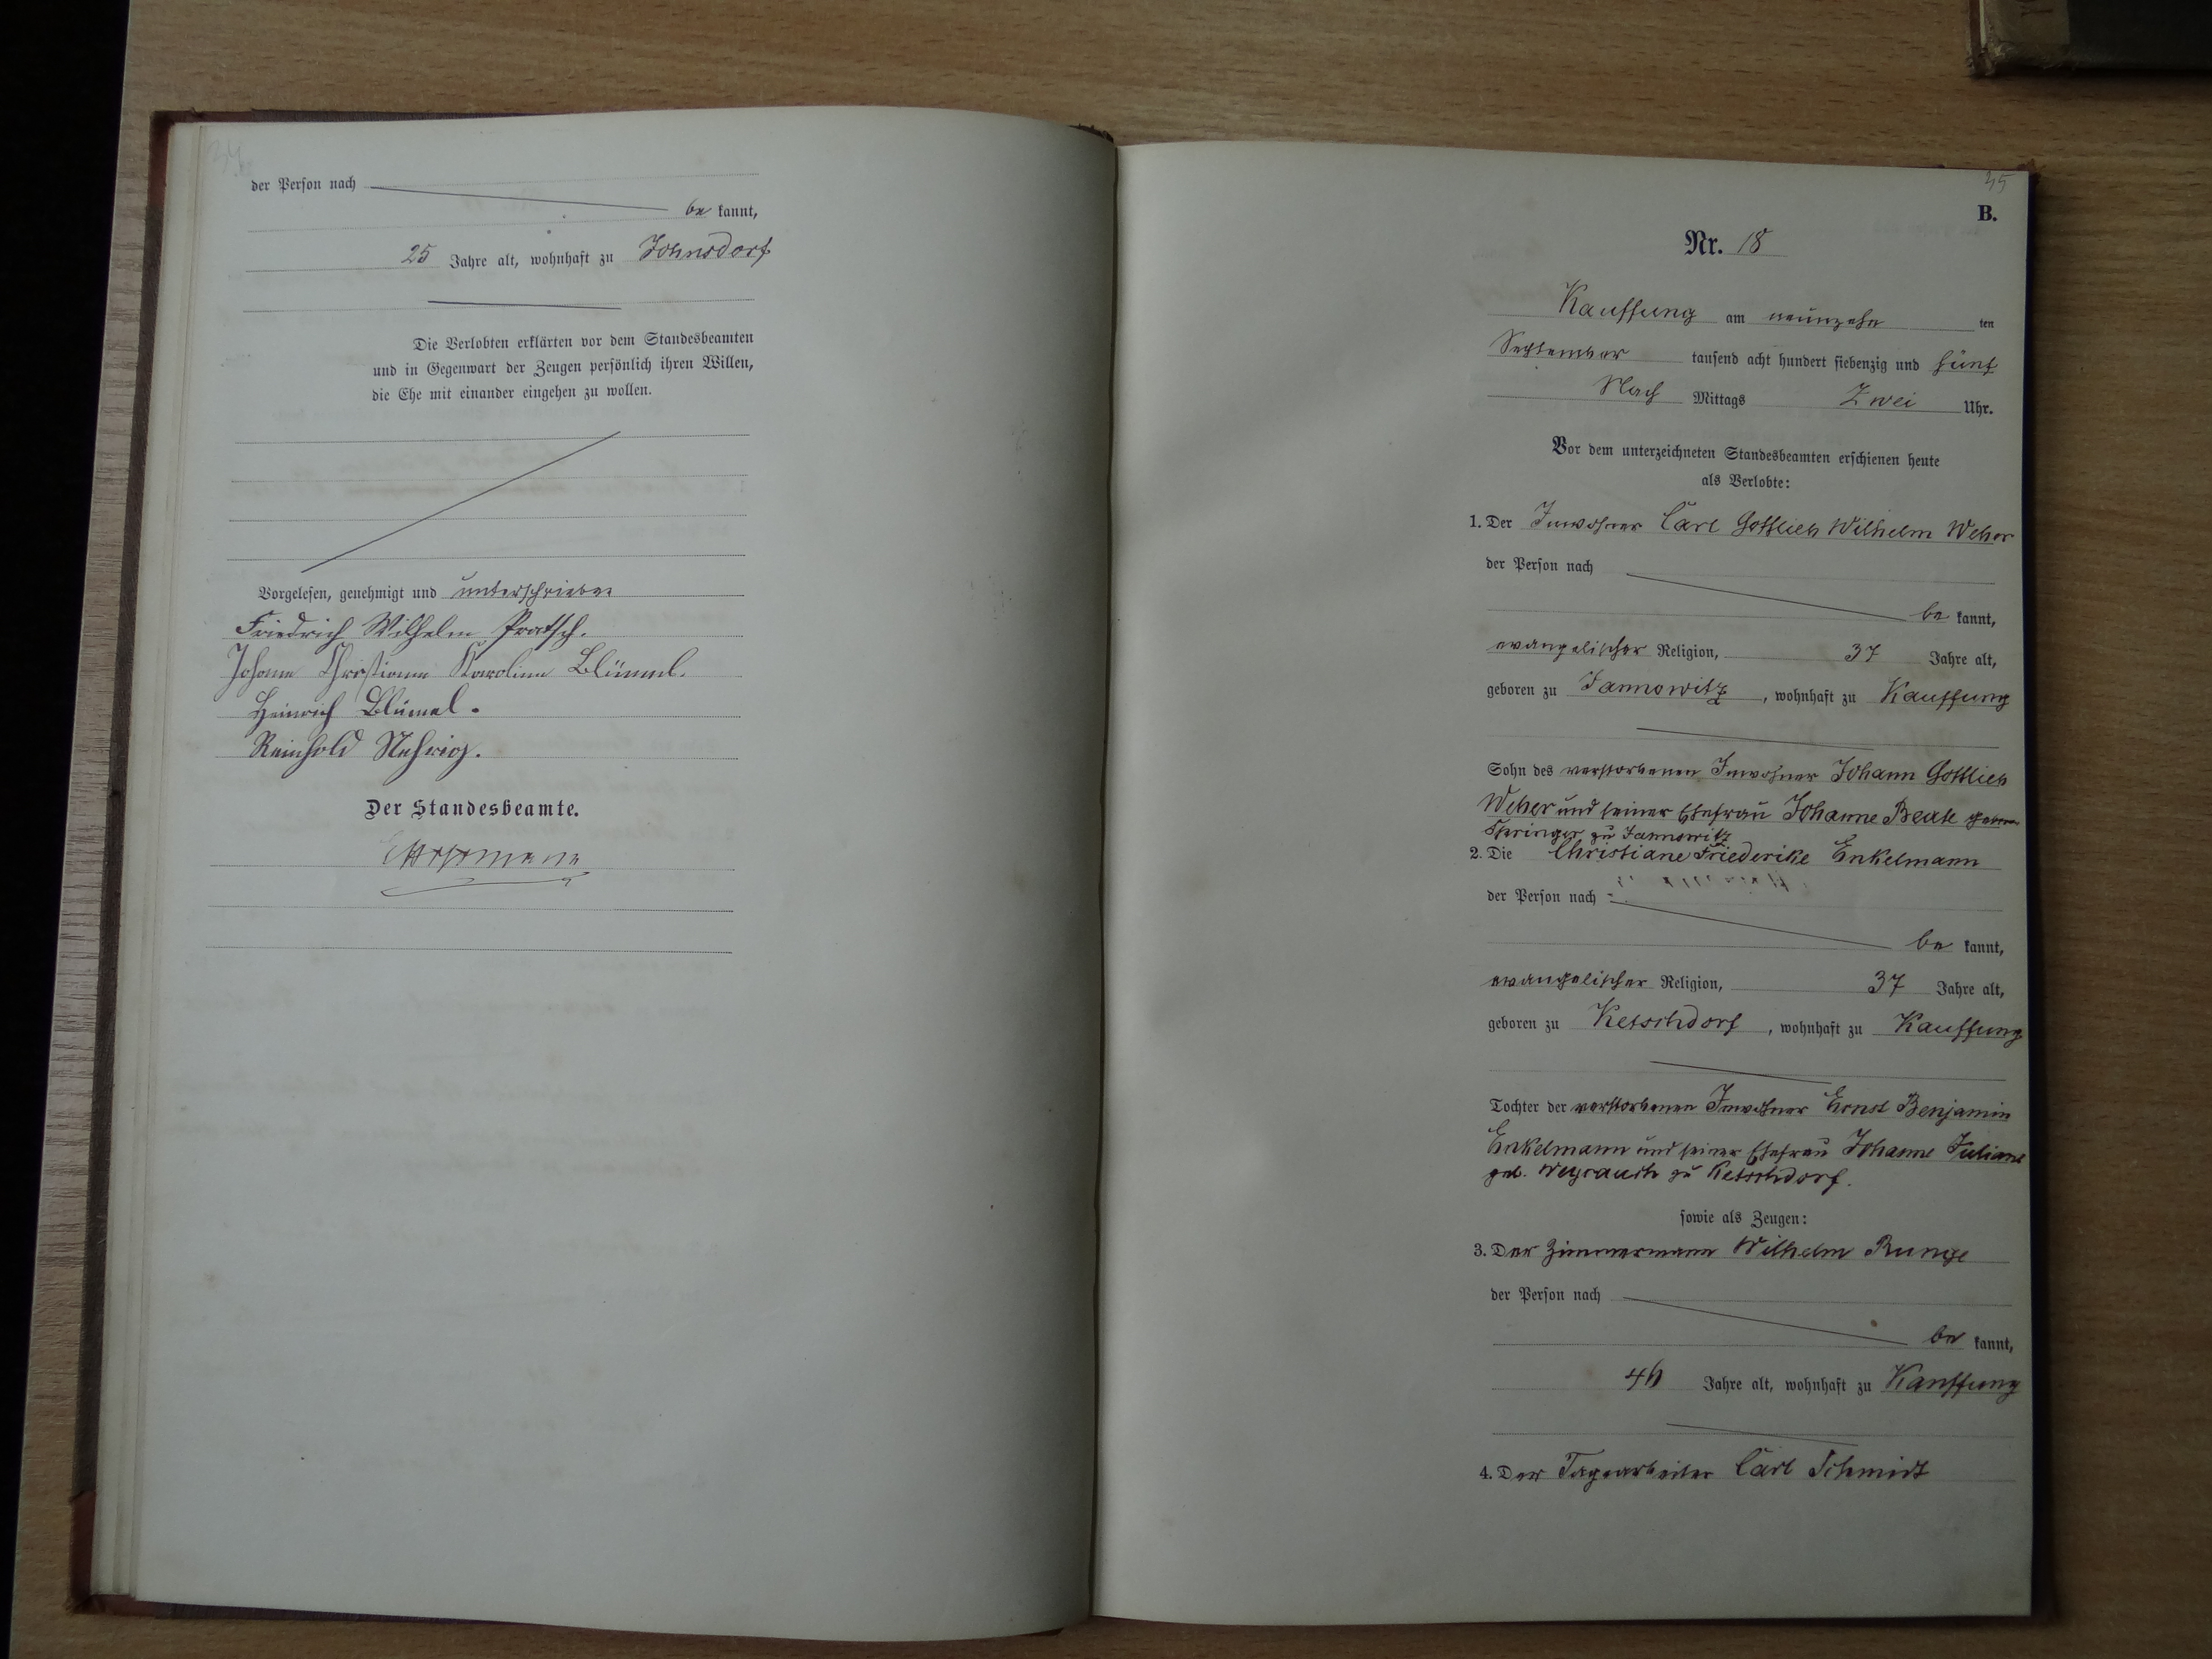 34
der Person nach
be kannt,
25 Jahre alt, wohnhaft zu Johnsdorf
Die Verlobten erklärten vor dem Standesbeamten
und in Gegenwart der Zeugen persönlich ihren Willen,
die Ehe mit einander eingehen zu wollen.
Vorgelesen, genehmigt und unterschrieben
Friedrich Wilhelm Pratsch.
Johanne Christiane Karoline Blümel.
Heinrich Blümel.
Reinhold Nehrig.
Der Standesbeamte.
35
B.
Nr. 18
Kauffung am neunzehn ten
September tausend acht hundert siebenzig und fünf
Nach Mittags Zwei Uhr.
Vor dem unterzeichneten Standesbeamten erschienen heute
als Verlobte:
1. Der Inwohner Carl Gottlieb Wilhelm Weber
der Person nach
be kannt,
evangelischer Religion, 37 Jahre alt,
geboren zu Jannowitz, wohnhaft zu Kauffung
Sohn des verstorbenen Inwohner Johann Gottlieb
Weber und seiner Ehefrau Johanne Beate
Springer zu Jannowitz
2. Die Christiane Friederike Enkelmann
der Person nach
be kannt,
evangelischer Religion, 37 Jahre alt,
geboren zu Ketschdorf, wohnhaft zu Kauffung
Tochter der verstorbenen Inwohner Ernst Benjamin
Enkelmann und seiner Ehefrau Johanne Juliane
geb. Weyrauch zu Ketschdorf.
sowie als Zeugen:
3. Der Zimmermann Wilhelm Runge
der Person nach
be kannt,
Jahre alt, wohnhaft zu Kauffung
4. Der Tagearbeiter Carl Schmidt